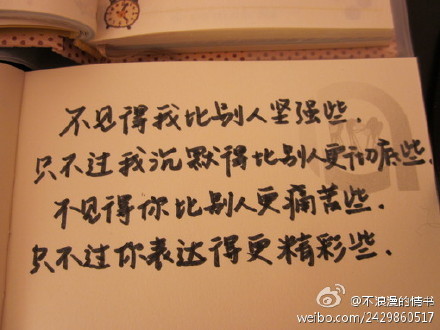 不见得我比别人坚强些.
只不过我沉默得比别人更彻底些.
不见得你比别人更痛苦些.
只不过你表达得更精彩些.
@不浪漫的情书
weibo.com/2429860517